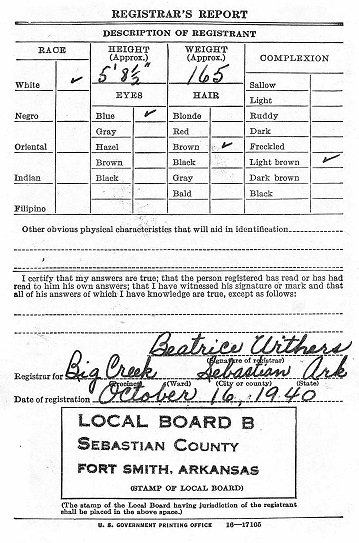 REGISTRAR'S REPORT
DESCRIPTION OF REGISTRANT
RACE HEIGHT (Approx.) WEIGHT (Approx.) COMPLEXION
5' 8½" 165
White ✓ Sallow
EYES HAIR Light
Negro Blue ✓ Blonde Ruddy
Gray Red Dark
Oriental Hazel Brown ✓ Freckled
Brown Black Light brown ✓
Indian Black Gray Dark brown
Bald Black
Filipino
Other obvious physical characteristics that will aid in identification
I certify that my answers are true; that the person registered has read or has had
read to him his own answers; that I have witnessed his signature or mark and that
all of his answers of which I have knowledge are true, except as follows:
Beatrice Withers
(Signature of registrar)
Registrar for Big Creek Sebastian Ark
(Precinct) (Ward) (City or county) (State)
Date of registration October 16, 1940
LOCAL BOARD B
SEBASTIAN COUNTY
FORT SMITH, ARKANSAS
(STAMP OF LOCAL BOARD)
(The stamp of the Local Board having jurisdiction of the registrant
shall be placed in the above space.)
U. S. GOVERNMENT PRINTING OFFICE 16—17105